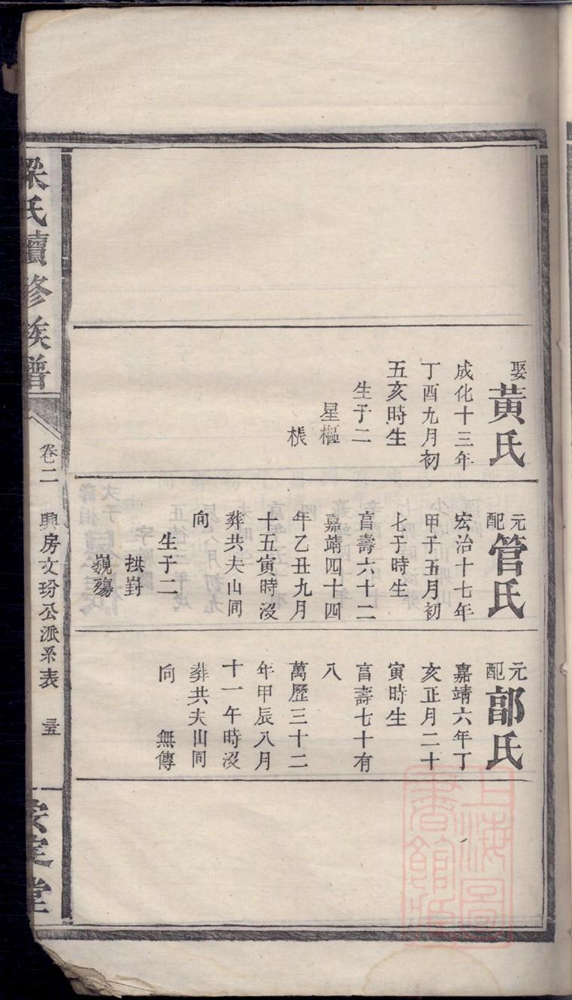 娶黃氏
成化十三年
丁酉九月初
五亥時生
生子二
星樞
樤
元配管氏
宏治十七年
甲子五月初
七子時生
享壽六十二
嘉靖四十四
年乙丑九月
十五寅時沒
葬共夫山同
向
生子二
拱對
巍殤
元配部氏
嘉靖六年丁
亥正月二十
寅時生
享壽七十有
八
萬歷三十二
年甲辰八月
十一午時沒
葬共夫山同
向 無傳
梁氏續修族譜
卷二
興房文玢公派系表
安定堂
上海圖書館藏